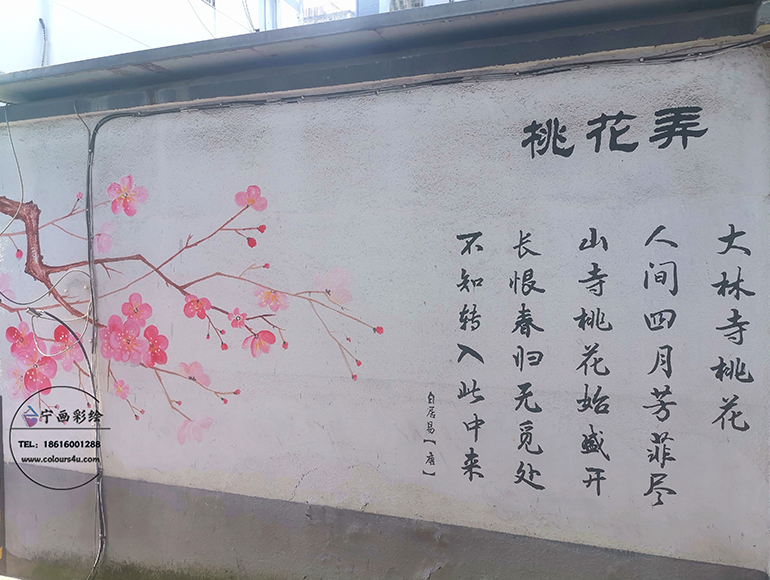 桃花弄
大林寺桃花
人间四月芳菲尽
山寺桃花始盛开
长恨春归无觅处
不知转入此中来
白居易【唐】
宁画彩绘
TEL：18616001288
www.colours4u.com